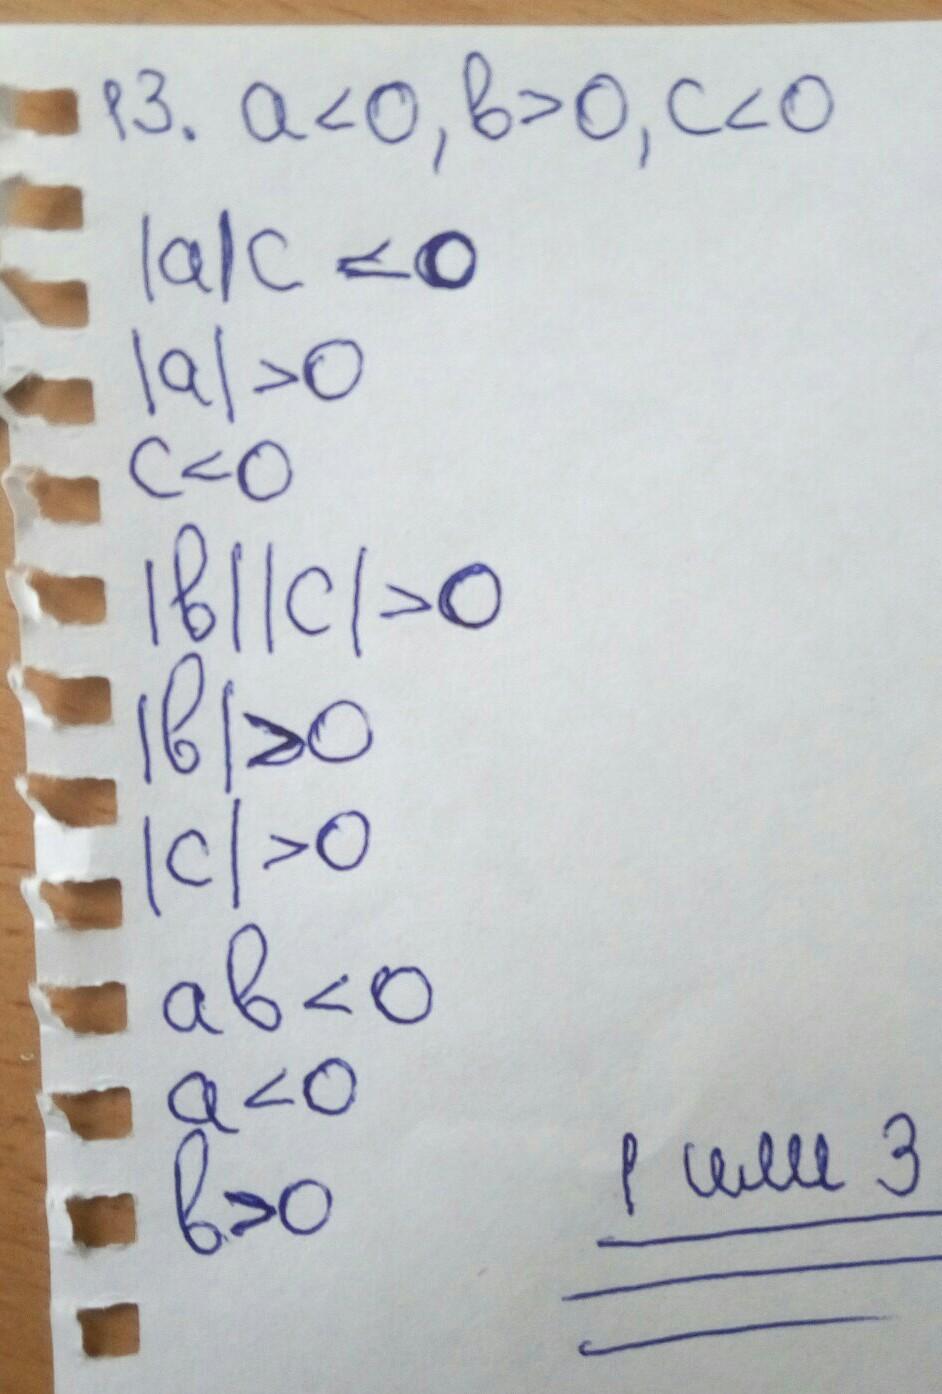 13. a<0, в>0, c<0
|a|c <0
|a|>0
c<0
|в||c|>0
|в|>0
|c|>0
aв<0
a<0
в>0
1 или 3